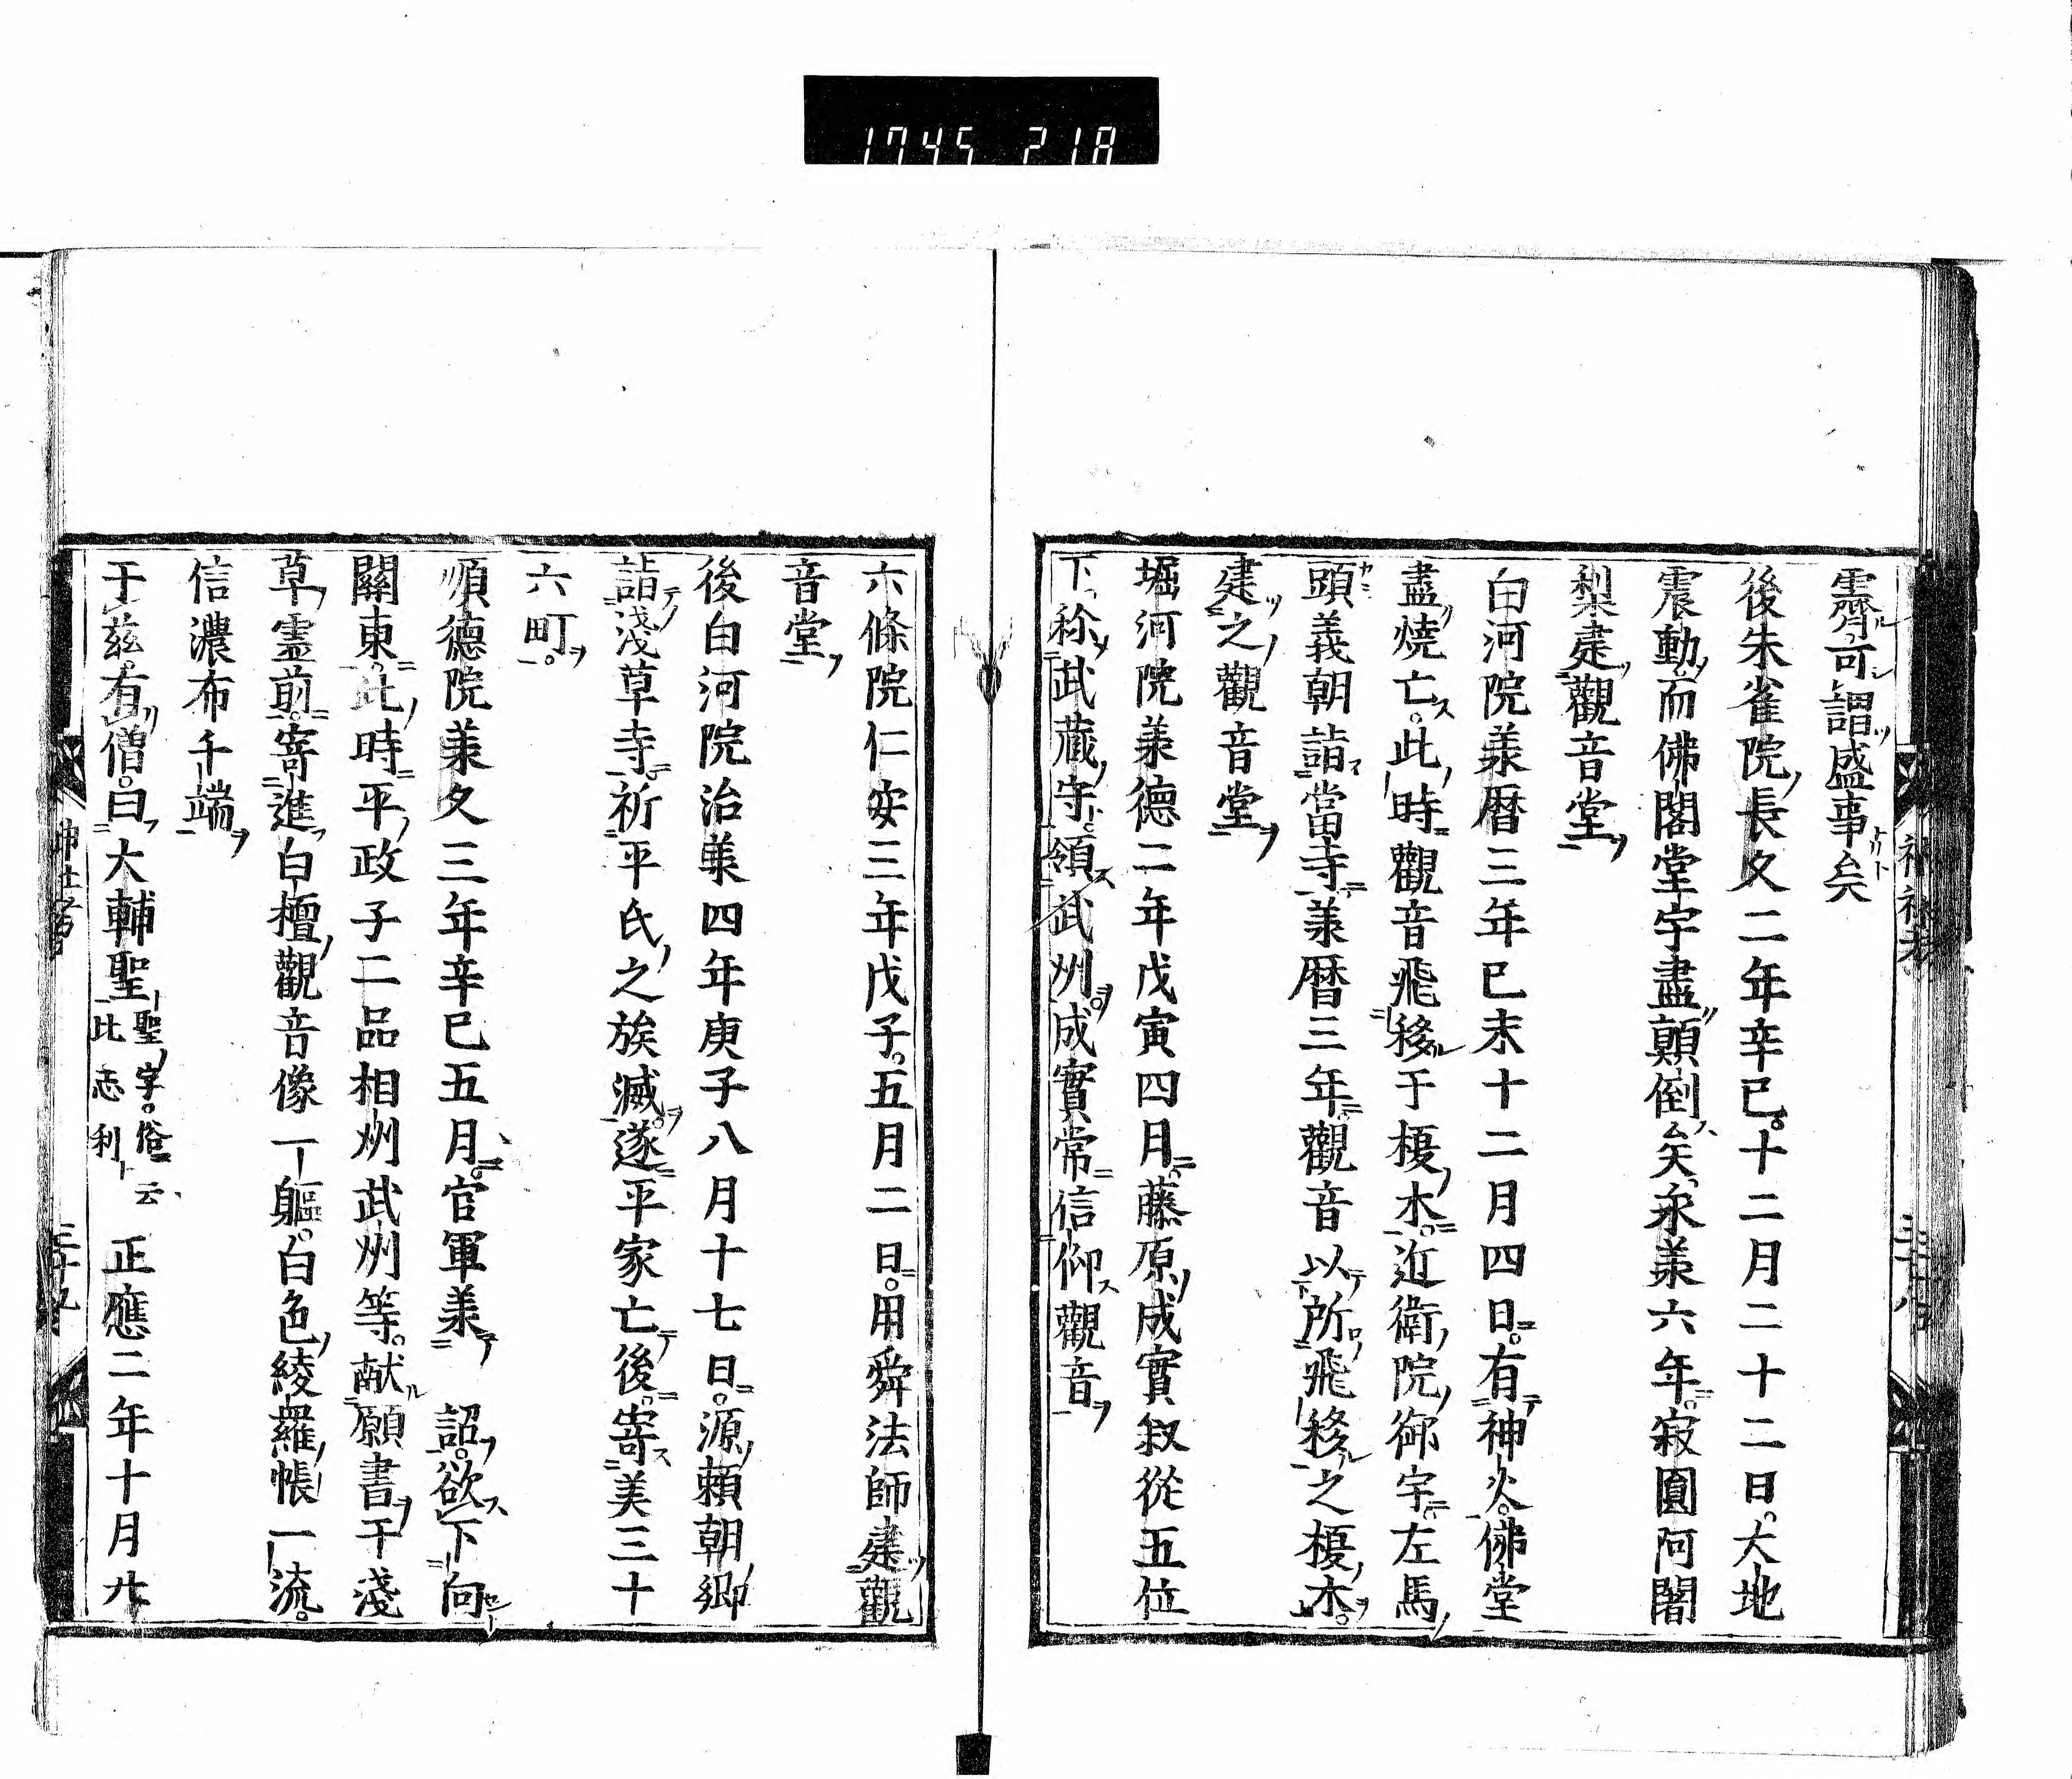 1745 218
霽可謂盛事矣
後朱雀院長久二年辛巳十二月二十二日大地
震動而佛閣堂宇盡顛倒矣永承六年寂圓阿闍
梨建觀音堂
白河院承暦三年已未十二月四日有神火佛堂
盡燒亡此時觀音飛移于榎木近衛院御宇左馬
頭義朝詣當寺承暦三年觀音以所飛移之榎木
建之觀音堂
堀河院承德二年戊寅四月藤原成實叙從五位
下称武藏守領武州成實常信仰觀音
六條院仁安三年戊子五月二日用舜法師建觀
音堂
後白河院治承四年庚子八月十七日源頼朝卿
詣淺草寺祈平氏之族滅遂平家亡後寄美三十
六町
順德院承久三年辛巳五月官軍承 詔欲下向
關東此時平政子二品相州武州等献願書于淺
草霊前寄進白檀觀音像一軀白色綾羅帳一流
信濃布千端
于茲有僧曰大輔聖聖字俗云比志利 正應二年十月廿